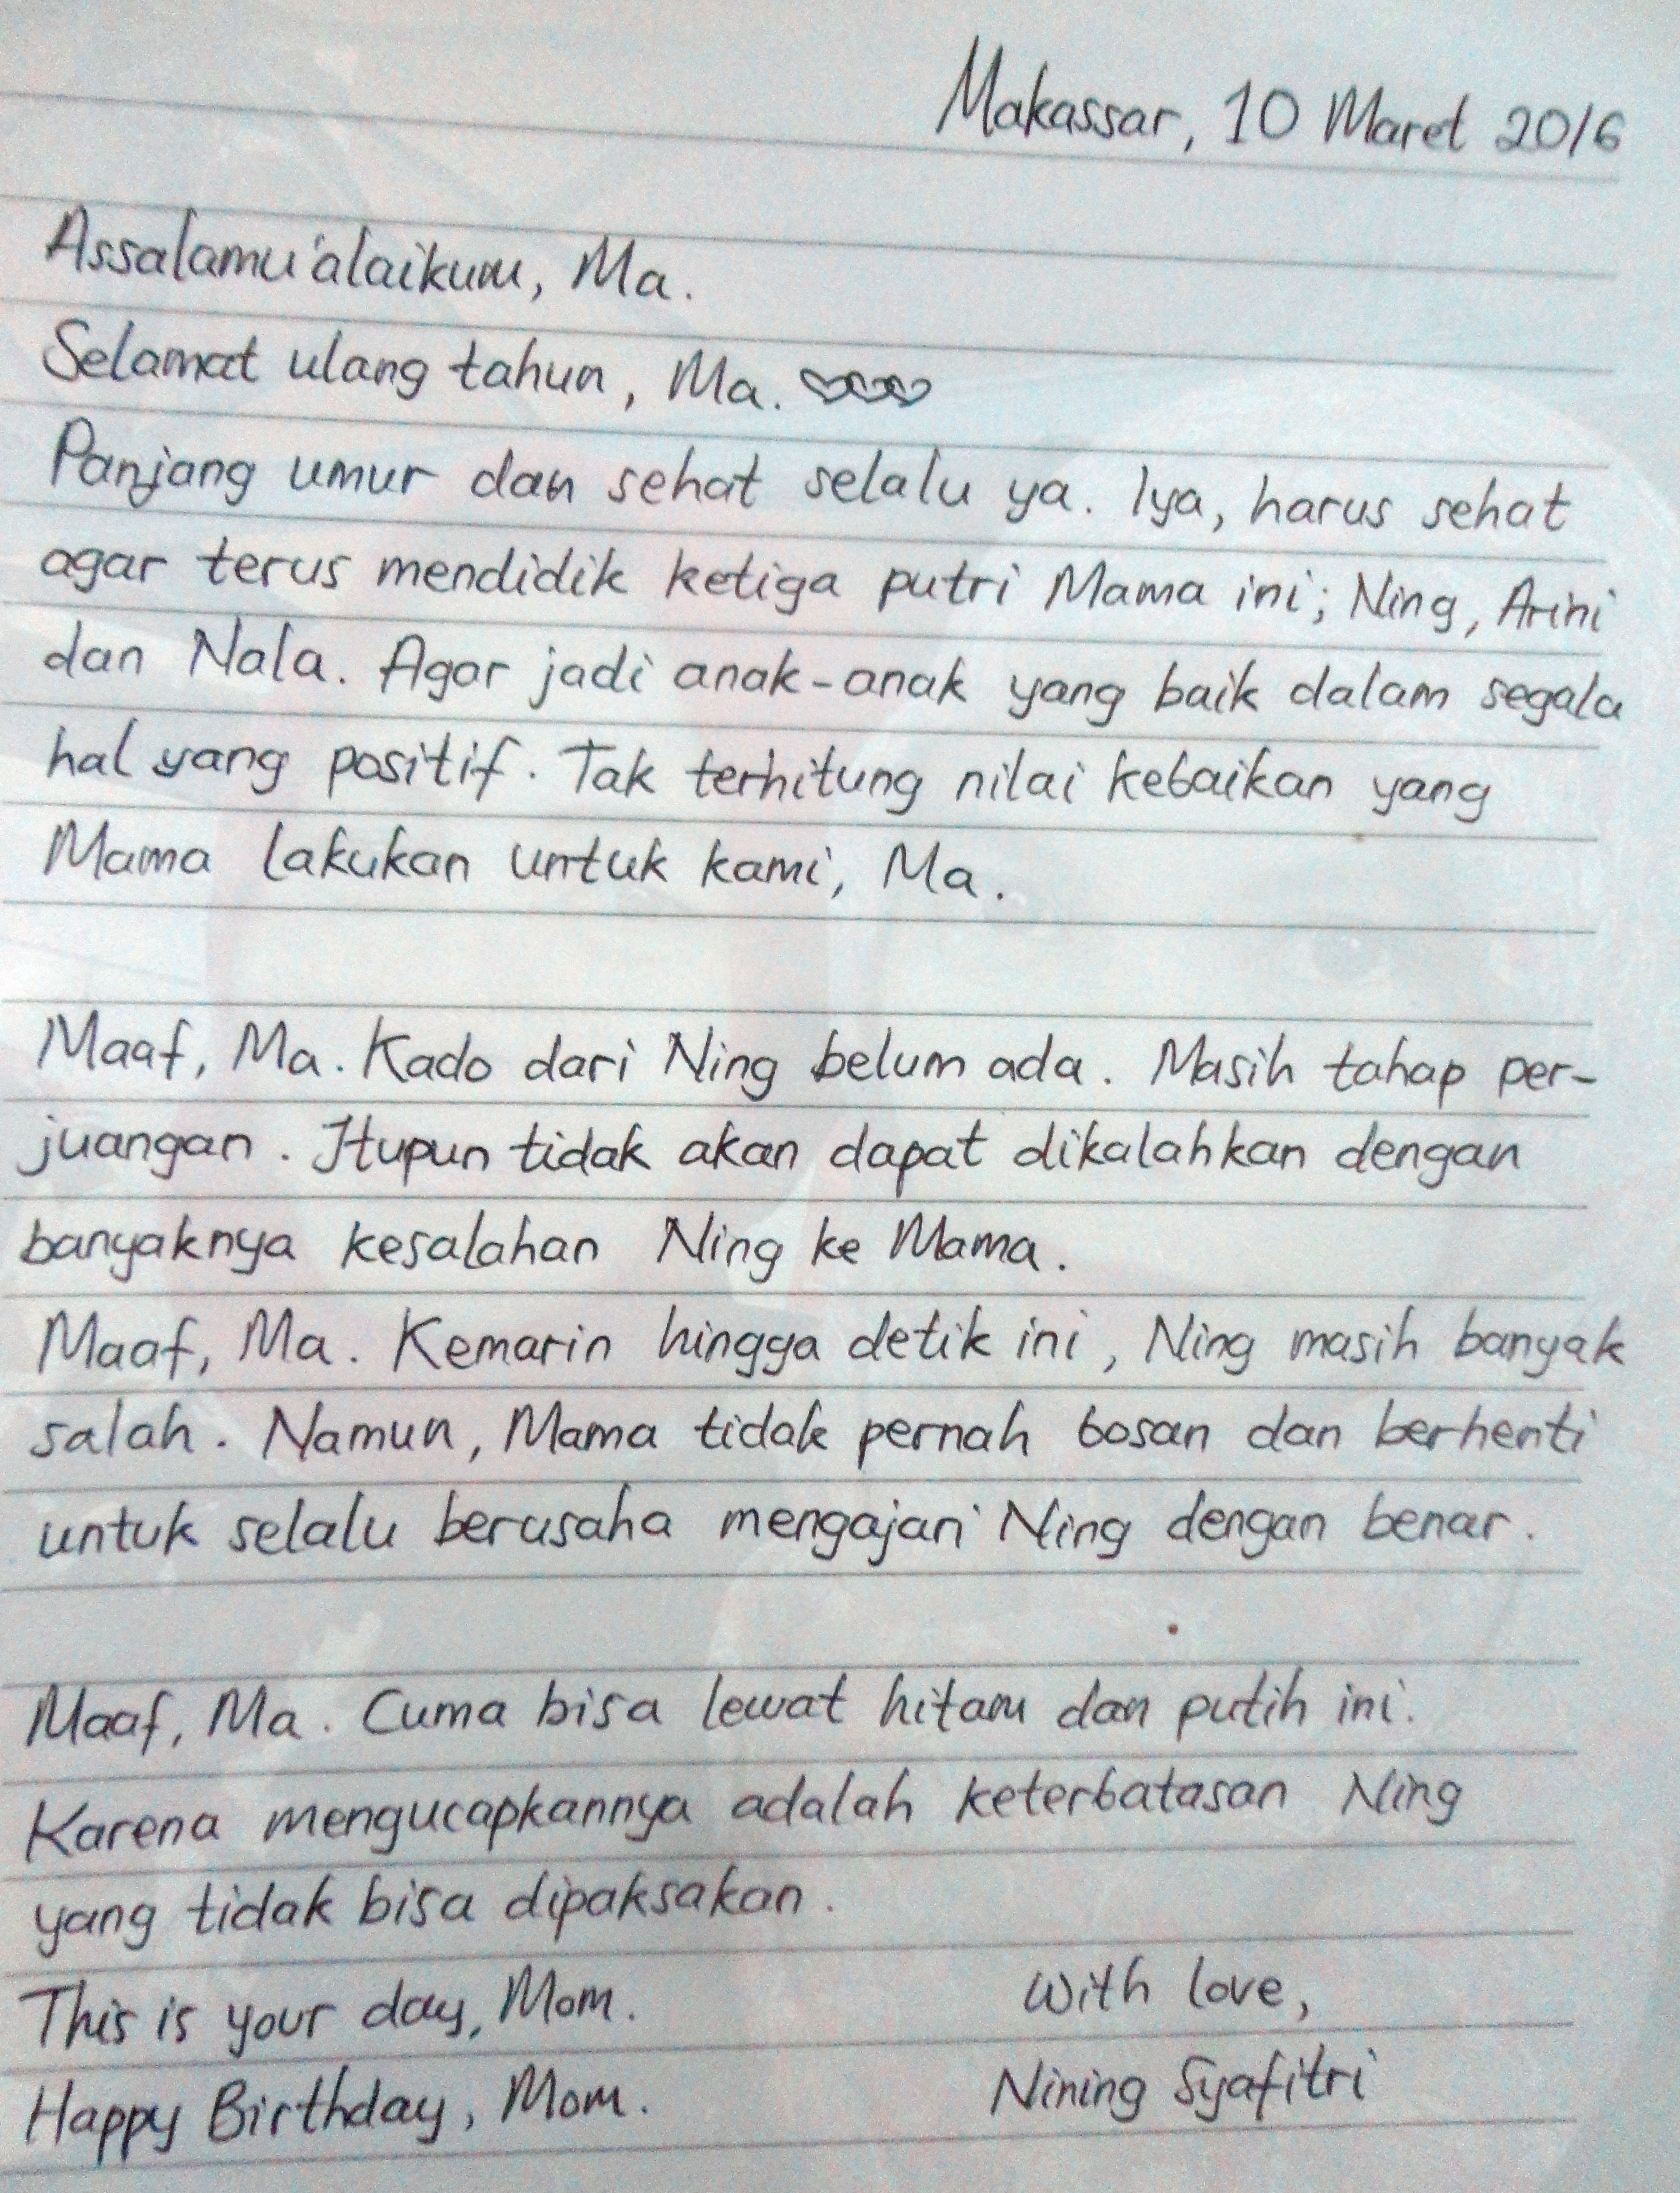 Makassar, 10 Maret 2016
Assalamu'alaikum, Ma.
Selamat ulang tahun, Ma. ♡♡♡
Panjang umur dan sehat selalu ya. Iya, harus sehat
agar terus mendidik ketiga putri Mama ini; Ning, Arini
dan Nala. Agar jadi anak-anak yang baik dalam segala
hal yang positif. Tak terhitung nilai kebaikan yang
Mama lakukan untuk kami, Ma.
Maaf, Ma. Kado dari Ning belum ada. Masih tahap per-
juangan. Itupun tidak akan dapat dikalahkan dengan
banyaknya kesalahan Ning ke Mama.
Maaf, Ma. Kemarin hingga detik ini, Ning masih banyak
salah. Namun, Mama tidak pernah bosan dan berhenti
untuk selalu berusaha mengajari Ning dengan benar.
Maaf, Ma. Cuma bisa lewat hitam dan putih ini.
Karena mengucapkannya adalah keterbatasan Ning
yang tidak bisa dipaksakan.
This is your day, Mom.
Happy Birthday, Mom.
With love,
Nining Syafitri